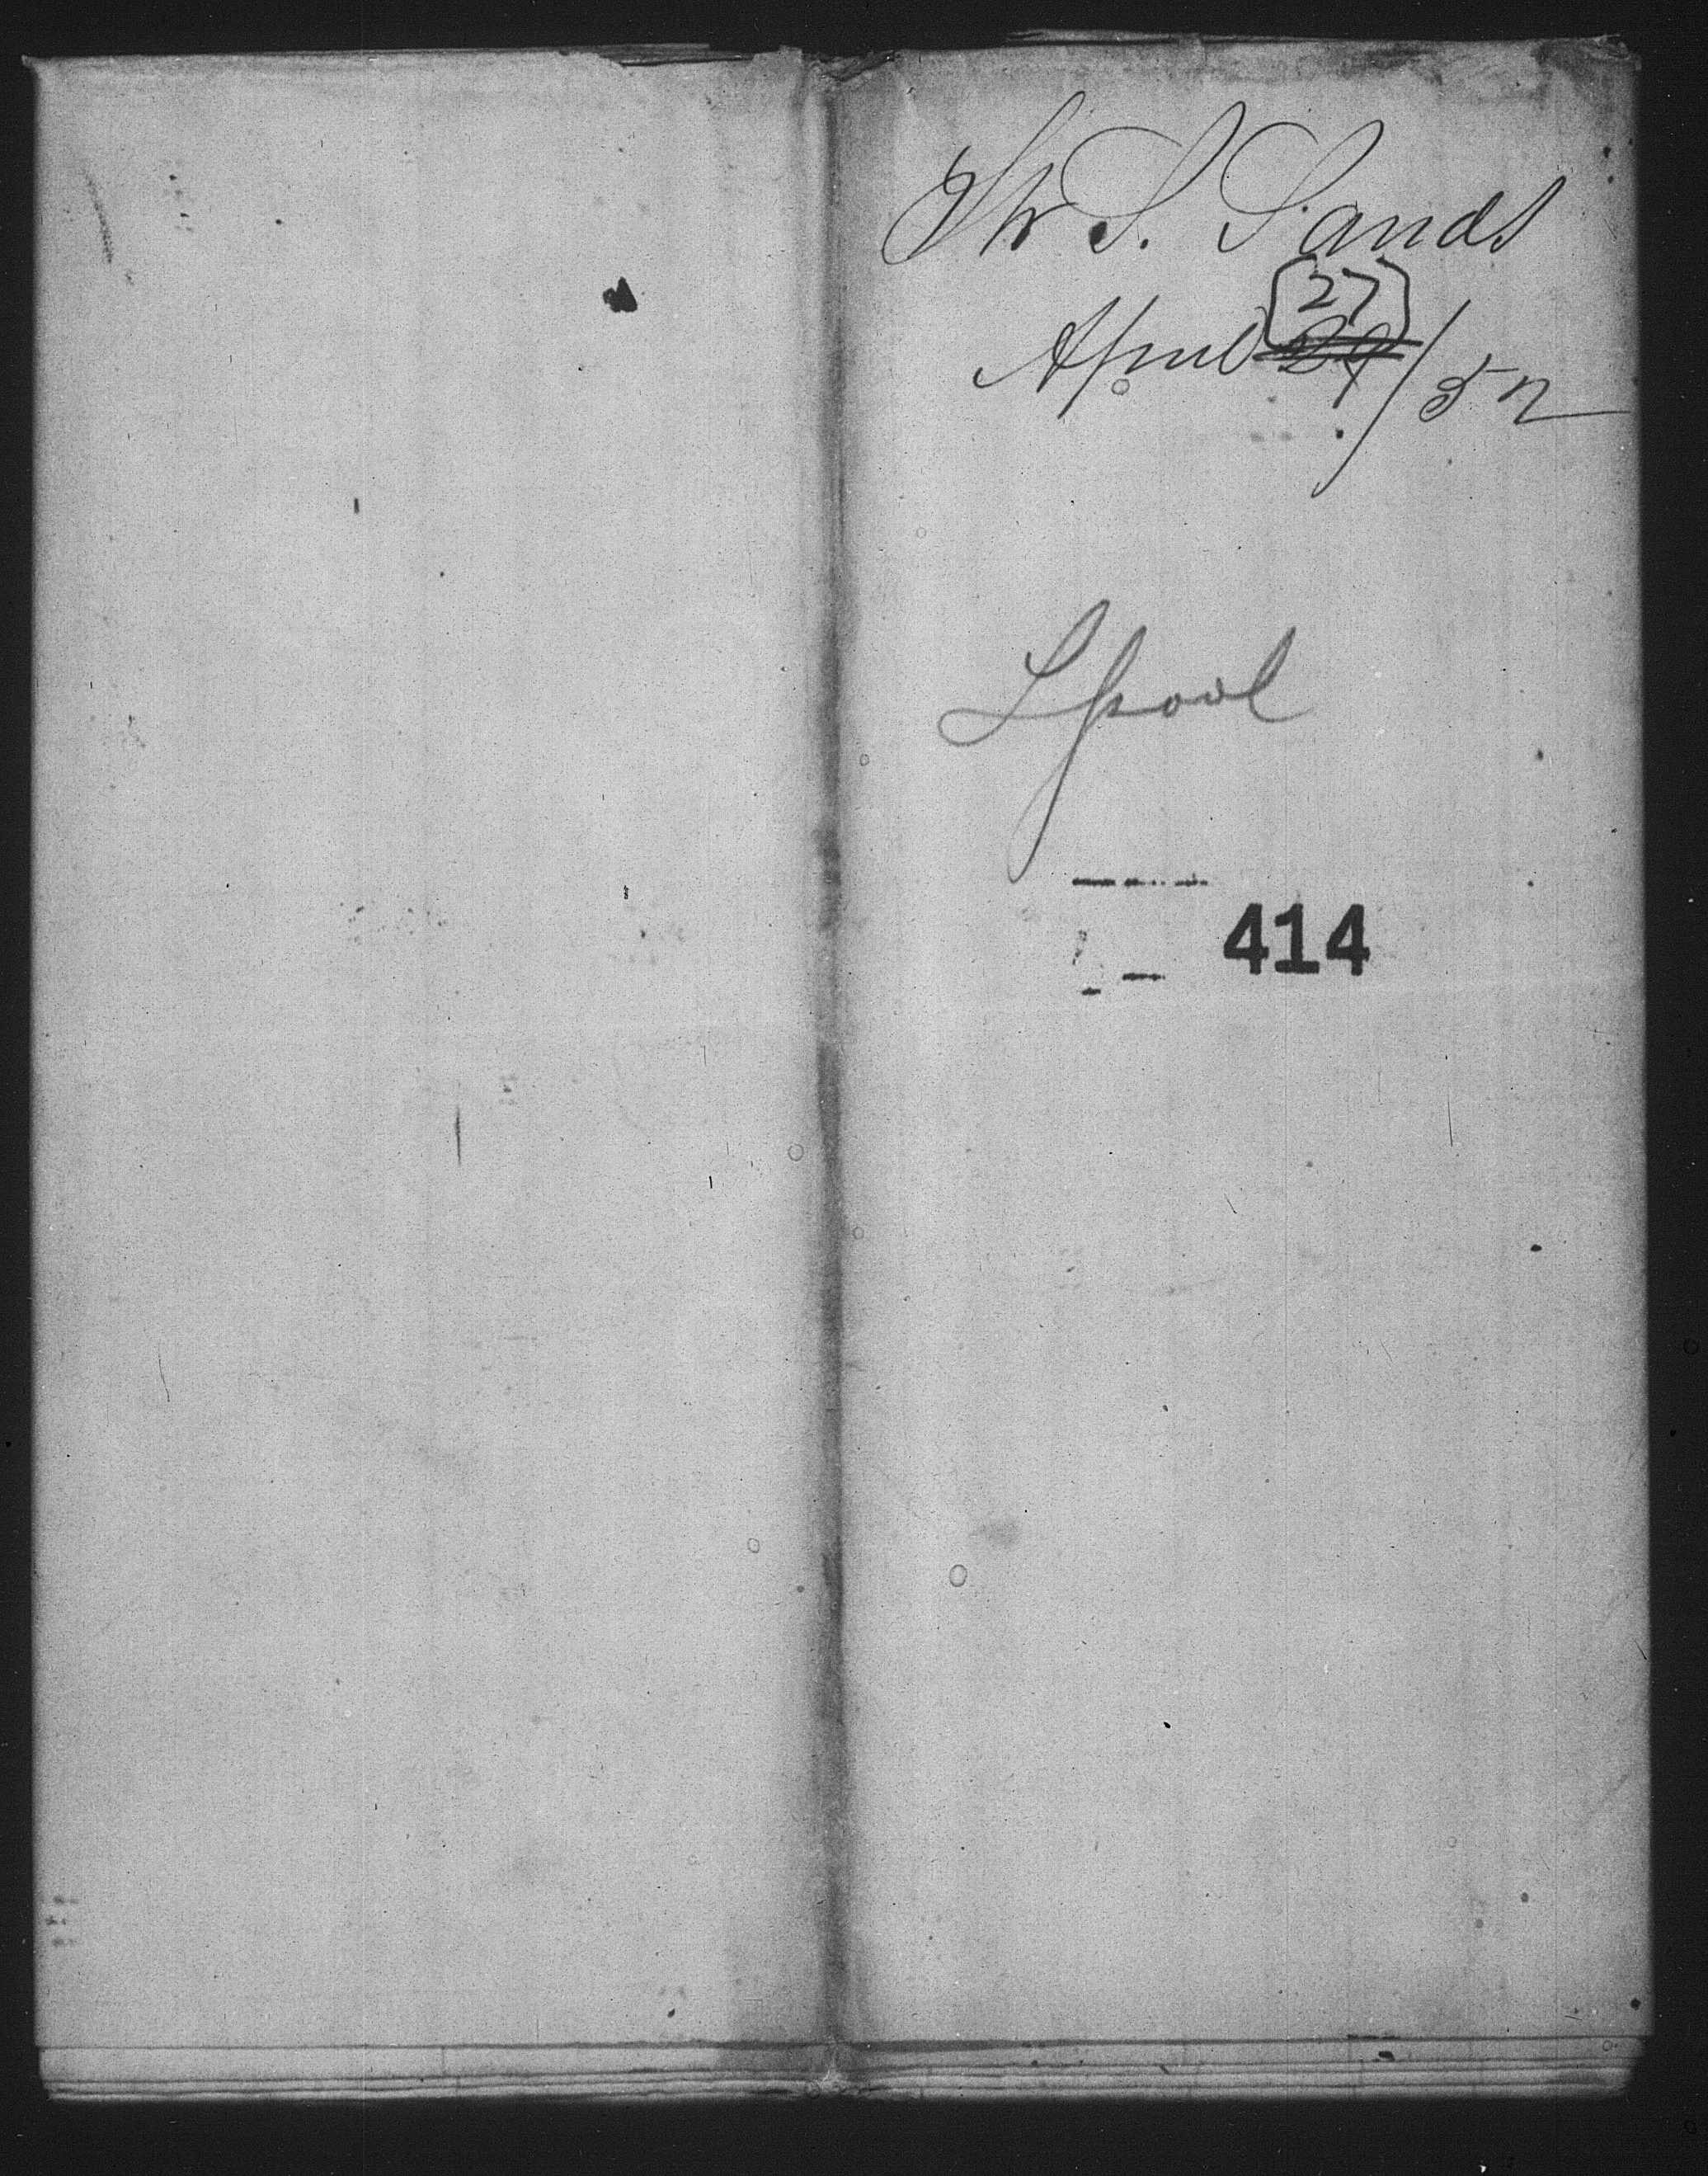 Str S. Sands
[27]
April 29/52
Lpool
414